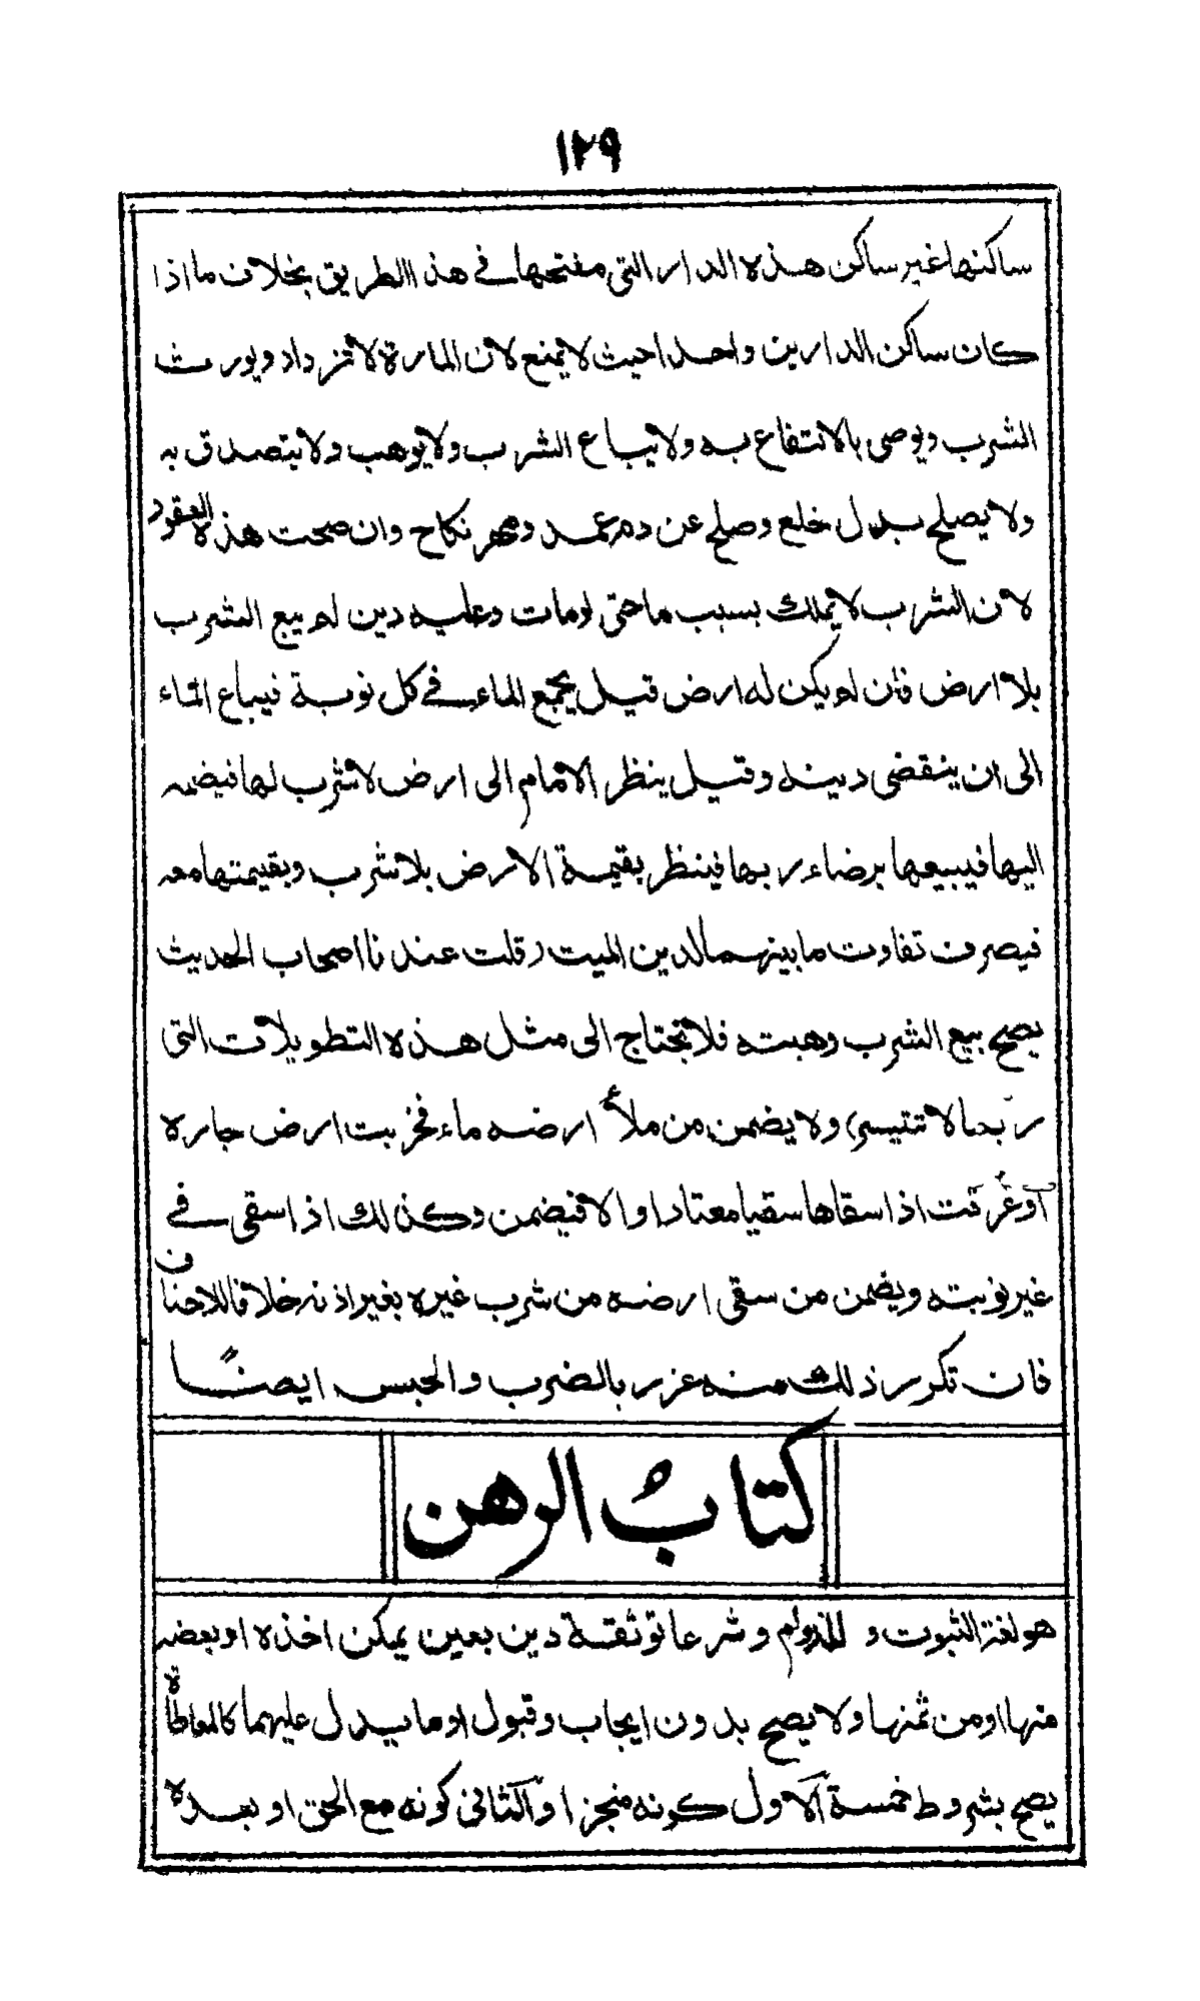 ١٢٩
ساكنها غير ساكن هذه الدار التي مفتحها في هذا الطريق بخلاف ما اذا
كان ساكن الدارين واحدا حيث لا يمنع لان المارة لا تزداد ويورث
الشرب ويوصى بالانتفاع به ولا يباع الشرب ولا يوهب ولا يتصدق به
ولا يصلح بدل خلع وصلح عن دم عمد ومهر نكاح وان صحت هذه العقود
لان الشرب لا يملك بسبب ما حتى لو مات وعليه دين لم يبع الشرب
بلا ارض فان لم يكن له ارض قيل يجمع الماء في كل نوبة فيباع الماء
الى ان ينقضى دينه وقيل ينظر الامام الى ارض لا شرب لها فيضمه
اليها فيبيعها برضاء ربها فينظر بقيمة الارض بلا شرب وبقيمتها معه
فيصرف تفاوت ما بينهما لدين الميت (قلت عندنا اصحاب الحديث
يصح بيع الشرب وهبته فلا تحتاج الى مثل هذه التطويلات التي
ربما لا تتيسر) ولا يضمن من ملأ ارضه ماء فخربت ارض جاره
اوغرقت اذا سقاها سقيا معتادا والا فيضمن وكذلك اذا سقى في
غير نوبته ويضمن من سقى ارضه من شرب غيره بغير اذنه خلافا للاحناف
فان تكرر ذلك منه عزر بالضرب والحبس ايضًا
كتابُ الرهن
هو لغة الثبوت و اللزوم وشرعا توثقة دين بعين يمكن اخذه او بعضه
منها او من ثمنها ولا يصح بدون ايجاب وقبول او ما يدل عليهما كالمعاطاة
يصح بشروط خمسة الاول كونه منجزا والثاني كونه مع الحق او بعده